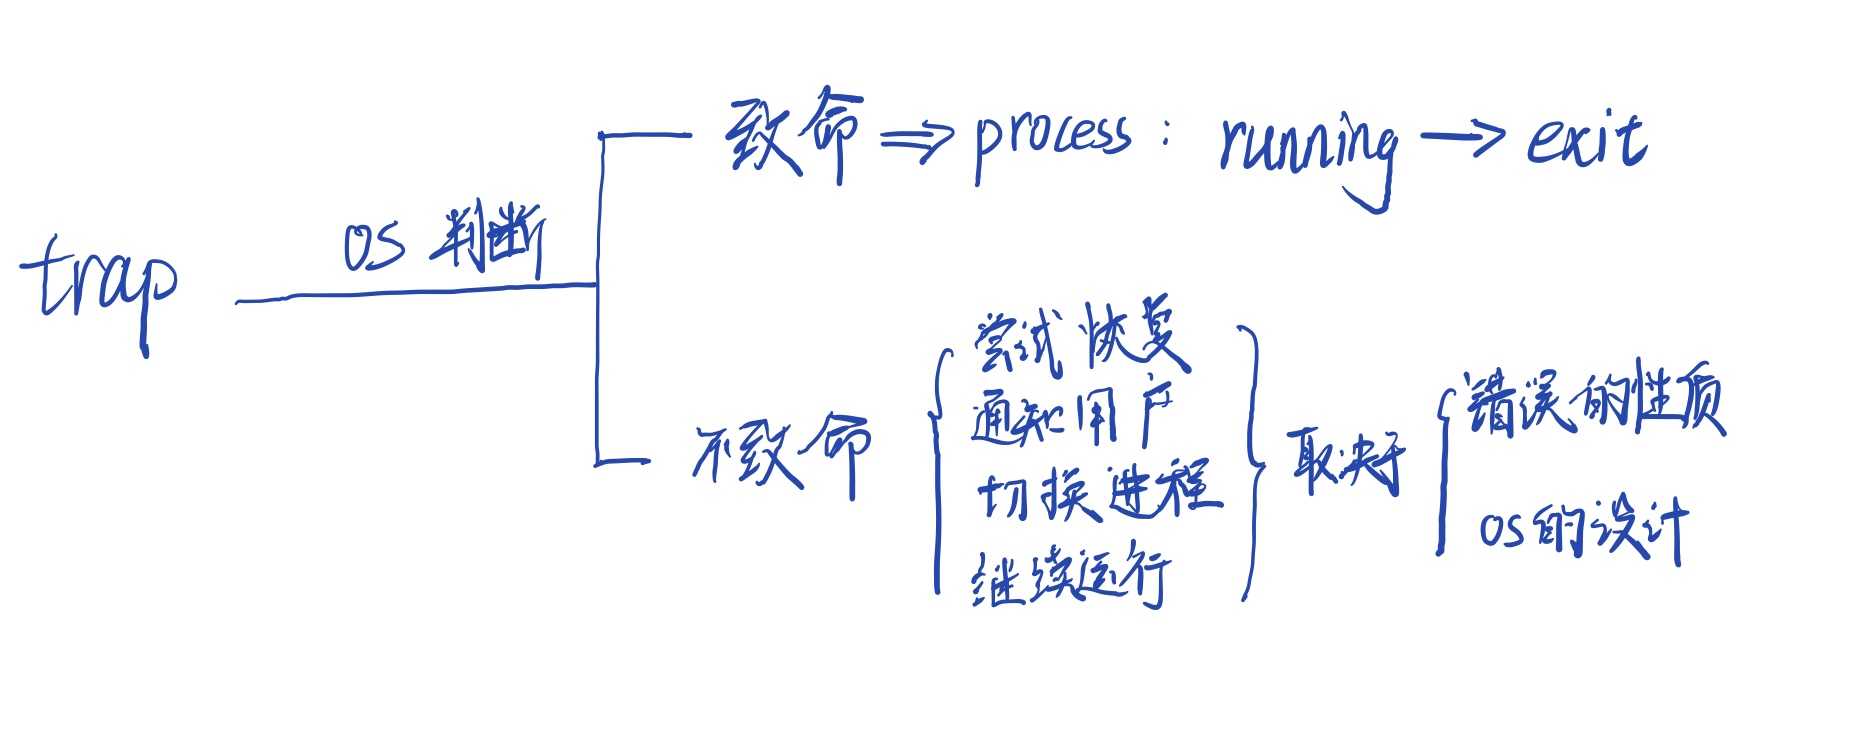 trap
OS 判断
致命 ⇒ process: running → exit
不致命
尝试恢复
通知用户
切换进程
继续运行
取决于
错误的性质
OS的设计